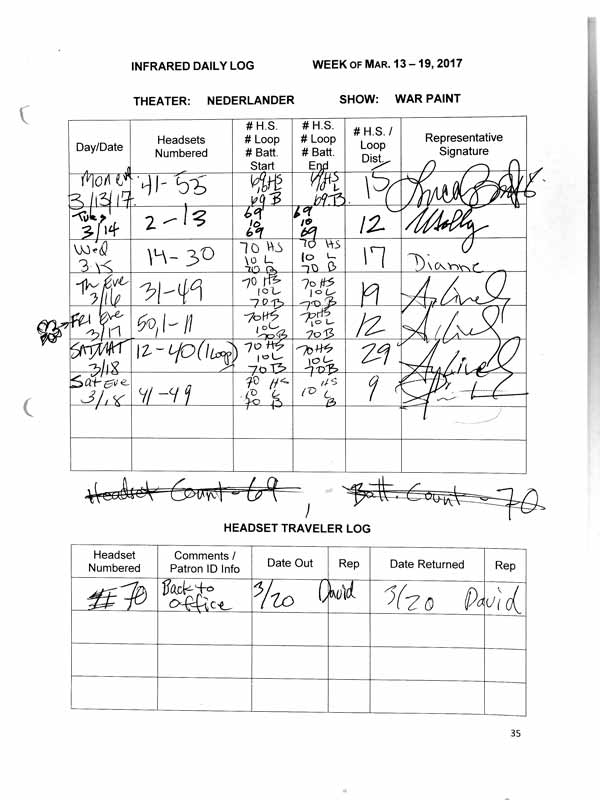 INFRARED DAILY LOG WEEK OF MAR. 13 – 19, 2017
THEATER: NEDERLANDER SHOW: WAR PAINT
Day/Date Headsets Numbered # H.S. # Loop # Batt. Start # H.S. # Loop # Batt. End # H.S. / Loop Dist. Representative Signature
Mon eve 3/13/17 41-53 69 HS 10 L 69 B 69 HS 10 L 69 B 15
Tues 3/14 2-13 69 10 69 69 10 69 12 Molly
Wed 3/15 14-30 70 HS 10 L 70 B 70 HS 10 L 70 B 17 Dianne
Th Eve 3/16 31-49 70 HS 10 L 70 B 70 HS 10 L 70 B 19
FRI Eve 3/17 50,1-11 70 HS 10 L 70 B 70 HS 10 L 70 B 12
SAT MAT 3/18 12-40 (1 Loop) 70 HS 10 L 70 B 70 HS 10 L 70 B 29
Sat Eve 3/18 41-49 70 HS 10 L 70 B HS 10 L B 9
Headset Count - 69 , Batt. Count - 70
HEADSET TRAVELER LOG
Headset Numbered Comments / Patron ID Info Date Out Rep Date Returned Rep
# 70 Back to office 3/20 David 3/20 David
35